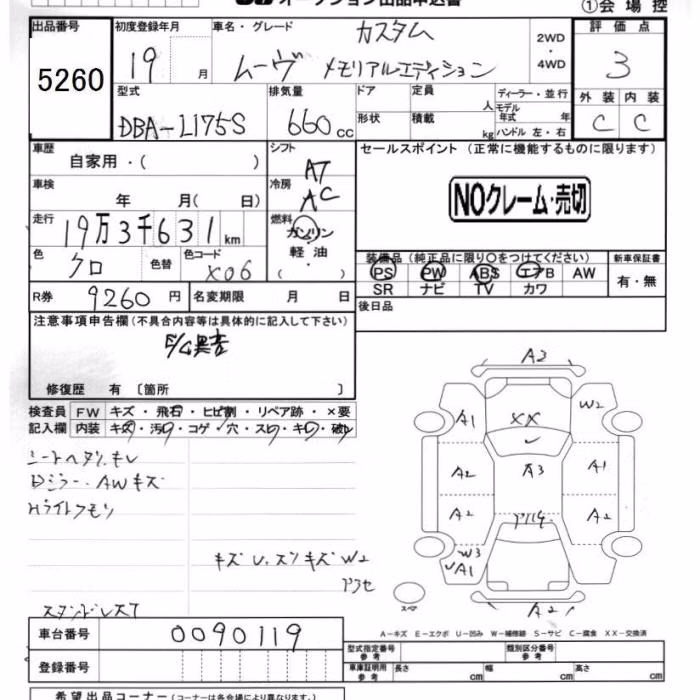 オークション出品申込書
①会場控
出品番号 初度登録年月 車名・グレード カスタム 2WD・4WD 評価点
5260 19 月 ムーヴ メモリアルエディション 3
型式 排気量 ドア 定員 人 ディーラー・並行 外装 内装
DBA-L175S 660 cc 形状 積載 kg モデル年式 年 ハンドル 左・右 C C
車歴 自家用・( ) シフト AT セールスポイント (正常に機能するものに限ります)
車検 年 月( 日) 冷房 AC NOクレーム・売切
走行 19万3千631km 燃料 ガソリン・軽油・( )
色 クロ 色替 色コード X06 装備品(純正品に限り○をつけてください) 新車保証書
PS PW ABS エアB AW 有・無
SR ナビ TV カワ
R券 9260円 名変期限 月 日 後日品
注意事項申告欄(不具合内容等は具体的に記入して下さい)
E/G異音
修復歴 有 〔箇所 〕
検査員 FW キズ・飛石・ヒビ割・リペア跡・×要
記入欄 内装 キズ・汚れ・コゲ・穴・スレ・キレ・破れ
シートヘタリ、キレ
Dミラー、AWキズ
Hライトクモリ
キズ U、スリキズ W2
A3
A1 XX W2
A2 A3 A1
A2 A2
W3
A1
スペア A2
A-キズ E-エクボ U-凹み W-補修跡 S-サビ C-腐食 XX-交換済
車台番号 0090119
登録番号
型式指定番号 参考 類別区分番号 参考
車庫証明用 参考 長さ cm 幅 cm 高さ cm
希望出品コーナー(コーナーは各会場により異なります)